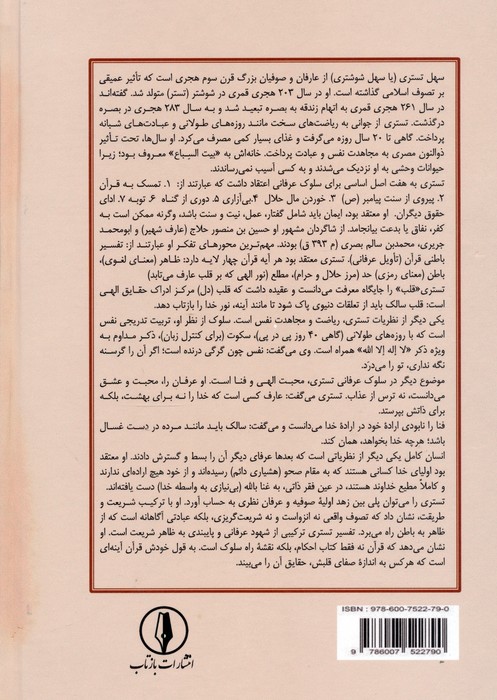 سهل تستری (یا سهل شوشتری) از عارفان و صوفیان بزرگ قرن سوم هجری است که تأثیر عمیقی
بر تصوف اسلامی گذاشته است. او در سال ۲۰۳ هجری قمری در شوشتر (تستر) متولد شد. گفته‌اند
در سال ۲۶۱ هجری قمری به اتهام زندقه به بصره تبعید شد و به سال ۲۸۳ هجری در بصره
درگذشت. تستری از جوانی به ریاضت‌های سخت مانند روزه‌های طولانی و عبادت‌های شبانه
پرداخت. گاهی تا ۲۰ سال روزه می‌گرفت و غذای بسیار کمی مصرف می‌کرد. او سال‌ها، تحت تأثیر
ذوالنون مصری به مجاهدت نفس و عبادت پرداخت. خانه‌اش به «بیت السباع» معروف بود؛ زیرا
حیوانات وحشی به او نزدیک می‌شدند و به کسی آسیب نمی‌رساندند.
تستری به هفت اصل اساسی برای سلوک عرفانی اعتقاد داشت که عبارتند از: ۱. تمسک به قرآن
۲. پیروی از سنت پیامبر (ص) ۳. خوردن مال حلال ۴.بی‌آزاری ۵. دوری از گناه ۶. توبه ۷. ادای
حقوق دیگران. او معتقد بود، ایمان باید شامل گفتار، عمل، نیت و سنت باشد، وگرنه ممکن است به
کفر، نفاق یا بدعت بیانجامد. از شاگردان مشهور او حسین بن منصور حلاج (عارف شهیر) و ابومحمد
جریری، محمدبن سالم بصری (م ۳۹۳ ق) بودند. مهم‌ترین محورهای تفکر او عبارتند از: تفسیر
باطنی قرآن (تأویل عرفانی). تستری معتقد بود هر آیه قرآن چهار لایه دارد: ظاهر (معنای لغوی)،
باطن (معنای رمزی) حد (مرز حلال و حرام)، مطلع (نور الهی که بر قلب عارف می‌تابد)
تستری«قلب» را جایگاه معرفت می‌دانست و عقیده داشت که قلب (دل) مرکز ادراک حقایق الهی
است: قلب سالک باید از تعلقات دنیوی پاک شود تا مانند آینه، نور خدا را بازتاب دهد.
یکی دیگر از نظریات تستری، ریاضت و مجاهدت نفس است. سلوک از نظر او، تربیت تدریجی نفس
است که با روزه‌های طولانی (گاهی ۴۰ روز پی در پی)، سکوت (برای کنترل زبان)، ذکر مداوم به
ویژه ذکر «لا إله إلا الله» همراه است. وی می‌گفت: نفس چون گرگی درنده است؛ اگر آن را گرسنه
نگه نداری، تو را می‌درَد.
موضوع دیگر در سلوک عرفانی تستری، محبت الهی و فنا است. او عرفان را، محبت و عشق
می‌دانست، نه ترس از عذاب. تستری می‌گفت: عارف کسی است که خدا را نه برای بهشت، بلکه
برای ذاتش بپرستد.
فنا را نابودی ارادهٔ خود در ارادهٔ خدا می‌دانست و می‌گفت: سالک باید مانند مرده در دست غسال
باشد؛ هرچه خدا بخواهد، همان کند.
انسان کامل یکی دیگر از نظریاتی است که بعدها عرفای دیگر آن را بسط و گسترش دادند. او معتقد
بود اولیای خدا کسانی هستند که به مقام صحو (هشیاری دائم) رسیده‌اند و از خود هیچ اراده‌ای ندارند
و کاملاً مطیع خداوند هستند، در عین فقر ذاتی، به غنا بالله (بی‌نیازی به واسطه خدا) دست یافته‌اند.
تستری را می‌توان پلی بین زهد اولیهٔ صوفیه و عرفان نظری به حساب آورد. او با ترکیب شریعت و
طریقت، نشان داد که تصوف واقعی نه انزواست و نه شریعت‌گریزی، بلکه عبادتی آگاهانه است که از
ظاهر به باطن راه می‌برد. تفسیر تستری ترکیبی از شهود عرفانی و پایبندی به ظاهر شریعت است. او
نشان می‌دهد که قرآن نه فقط کتاب احکام، بلکه نقشهٔ راه سلوک است. به قول خودش قرآن آینه‌ای
است که هرکس به اندازهٔ صفای قلبش، حقایق آن را می‌بیند.
ISBN : 978-600-7522-79-0
9 786007 522790
انتشارات بازتاب